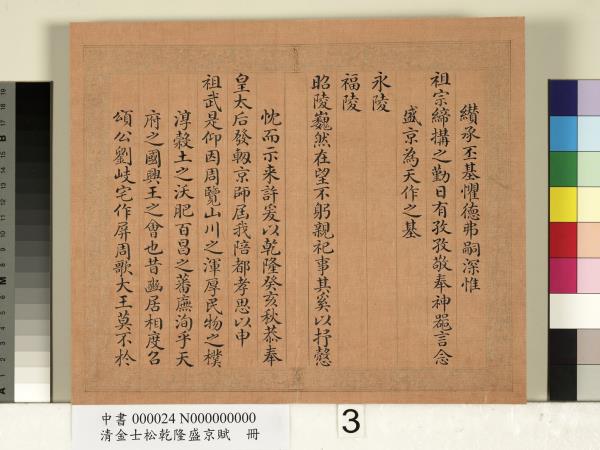 纘承丕基懼德弗嗣深惟
祖宗締搆之勤日有孜孜敬奉神器言念
盛京為天作之基
永陵
福陵
昭陵巍然在望不躬親祀事其奚以抒愨
忱而示来許爰以乾隆癸亥秋恭奉
皇太后發軔京師屆我陪都孝思以申
祖武是仰因周覽山川之渾厚民物之樸
淳穀土之沃肥百昌之蕃廡洵乎天
府之國興王之會也昔豳居相度召
頌公劉岐宅作屏周歌大王莫不於
中書 000024 N000000000
清金士松乾隆盛京賦 冊
3